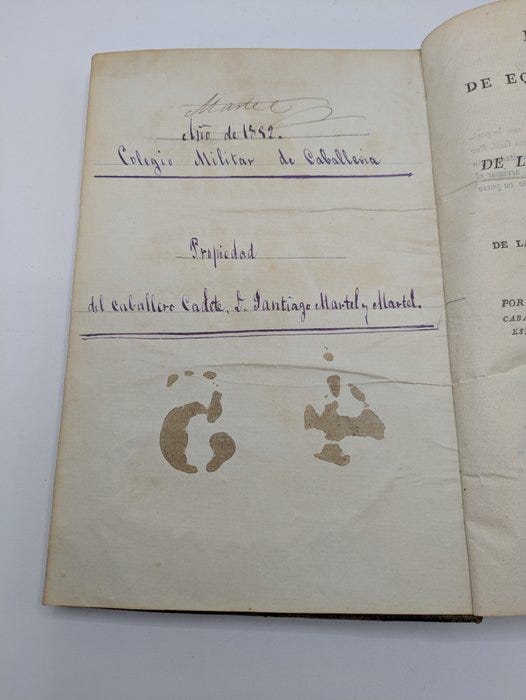 Martel
Año de 1882.
Colegio Militar de Caballeria
Propiedad
del caballero Cadete, D. Santiago Martel y Martel.
DE EQ
DE L
DE LA
POR
CABA
ES